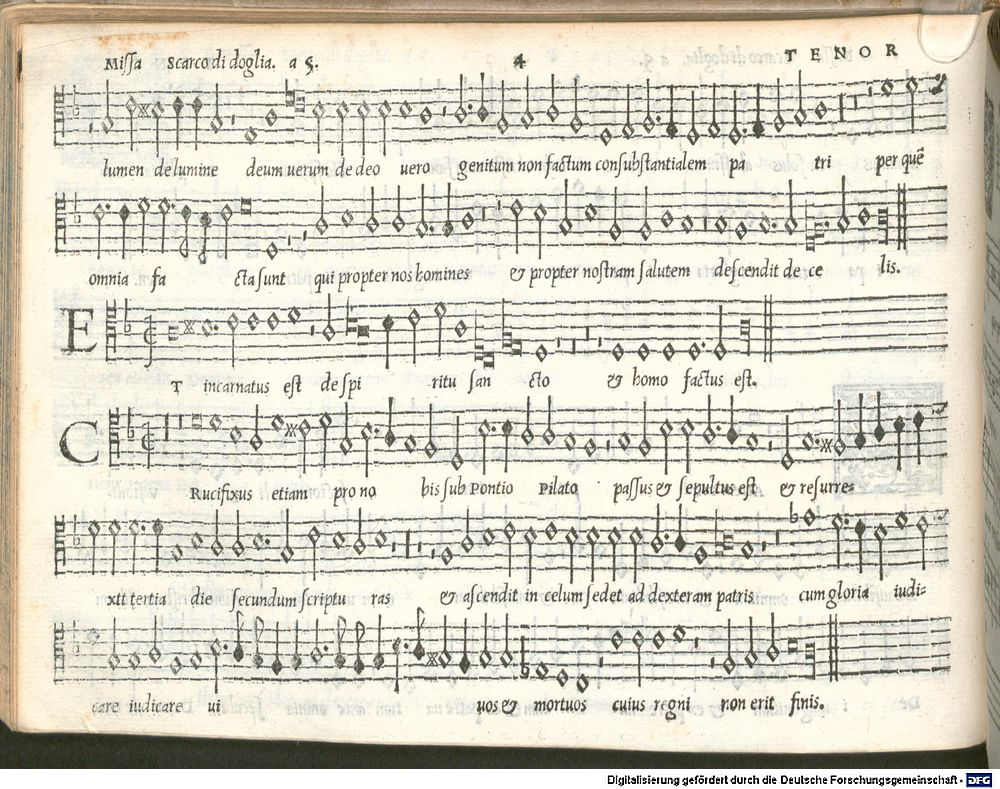 Missa Scarco di doglia. a 5. 4 TENOR
lumen de lumine deum uerum de deo uero genitum non factum consubstantialem pa tri per quẽ
omnia fa cta sunt qui propter nos homines & propter nostram salutem descendit de ce lis.
E T incarnatus est de spi ritu san cto & homo factus est.
C Rucifixus etiam pro no bis sub Pontio Pilato passus & sepultus est & resurre=
xit tertia die secundum scriptu ras & ascendit in celum sedet ad dexteram patris cum gloria iudi=
care iudicare ui uos & mortuos cuius regni non erit finis.
Digitalisierung gefördert durch die Deutsche Forschungsgemeinschaft - DFG